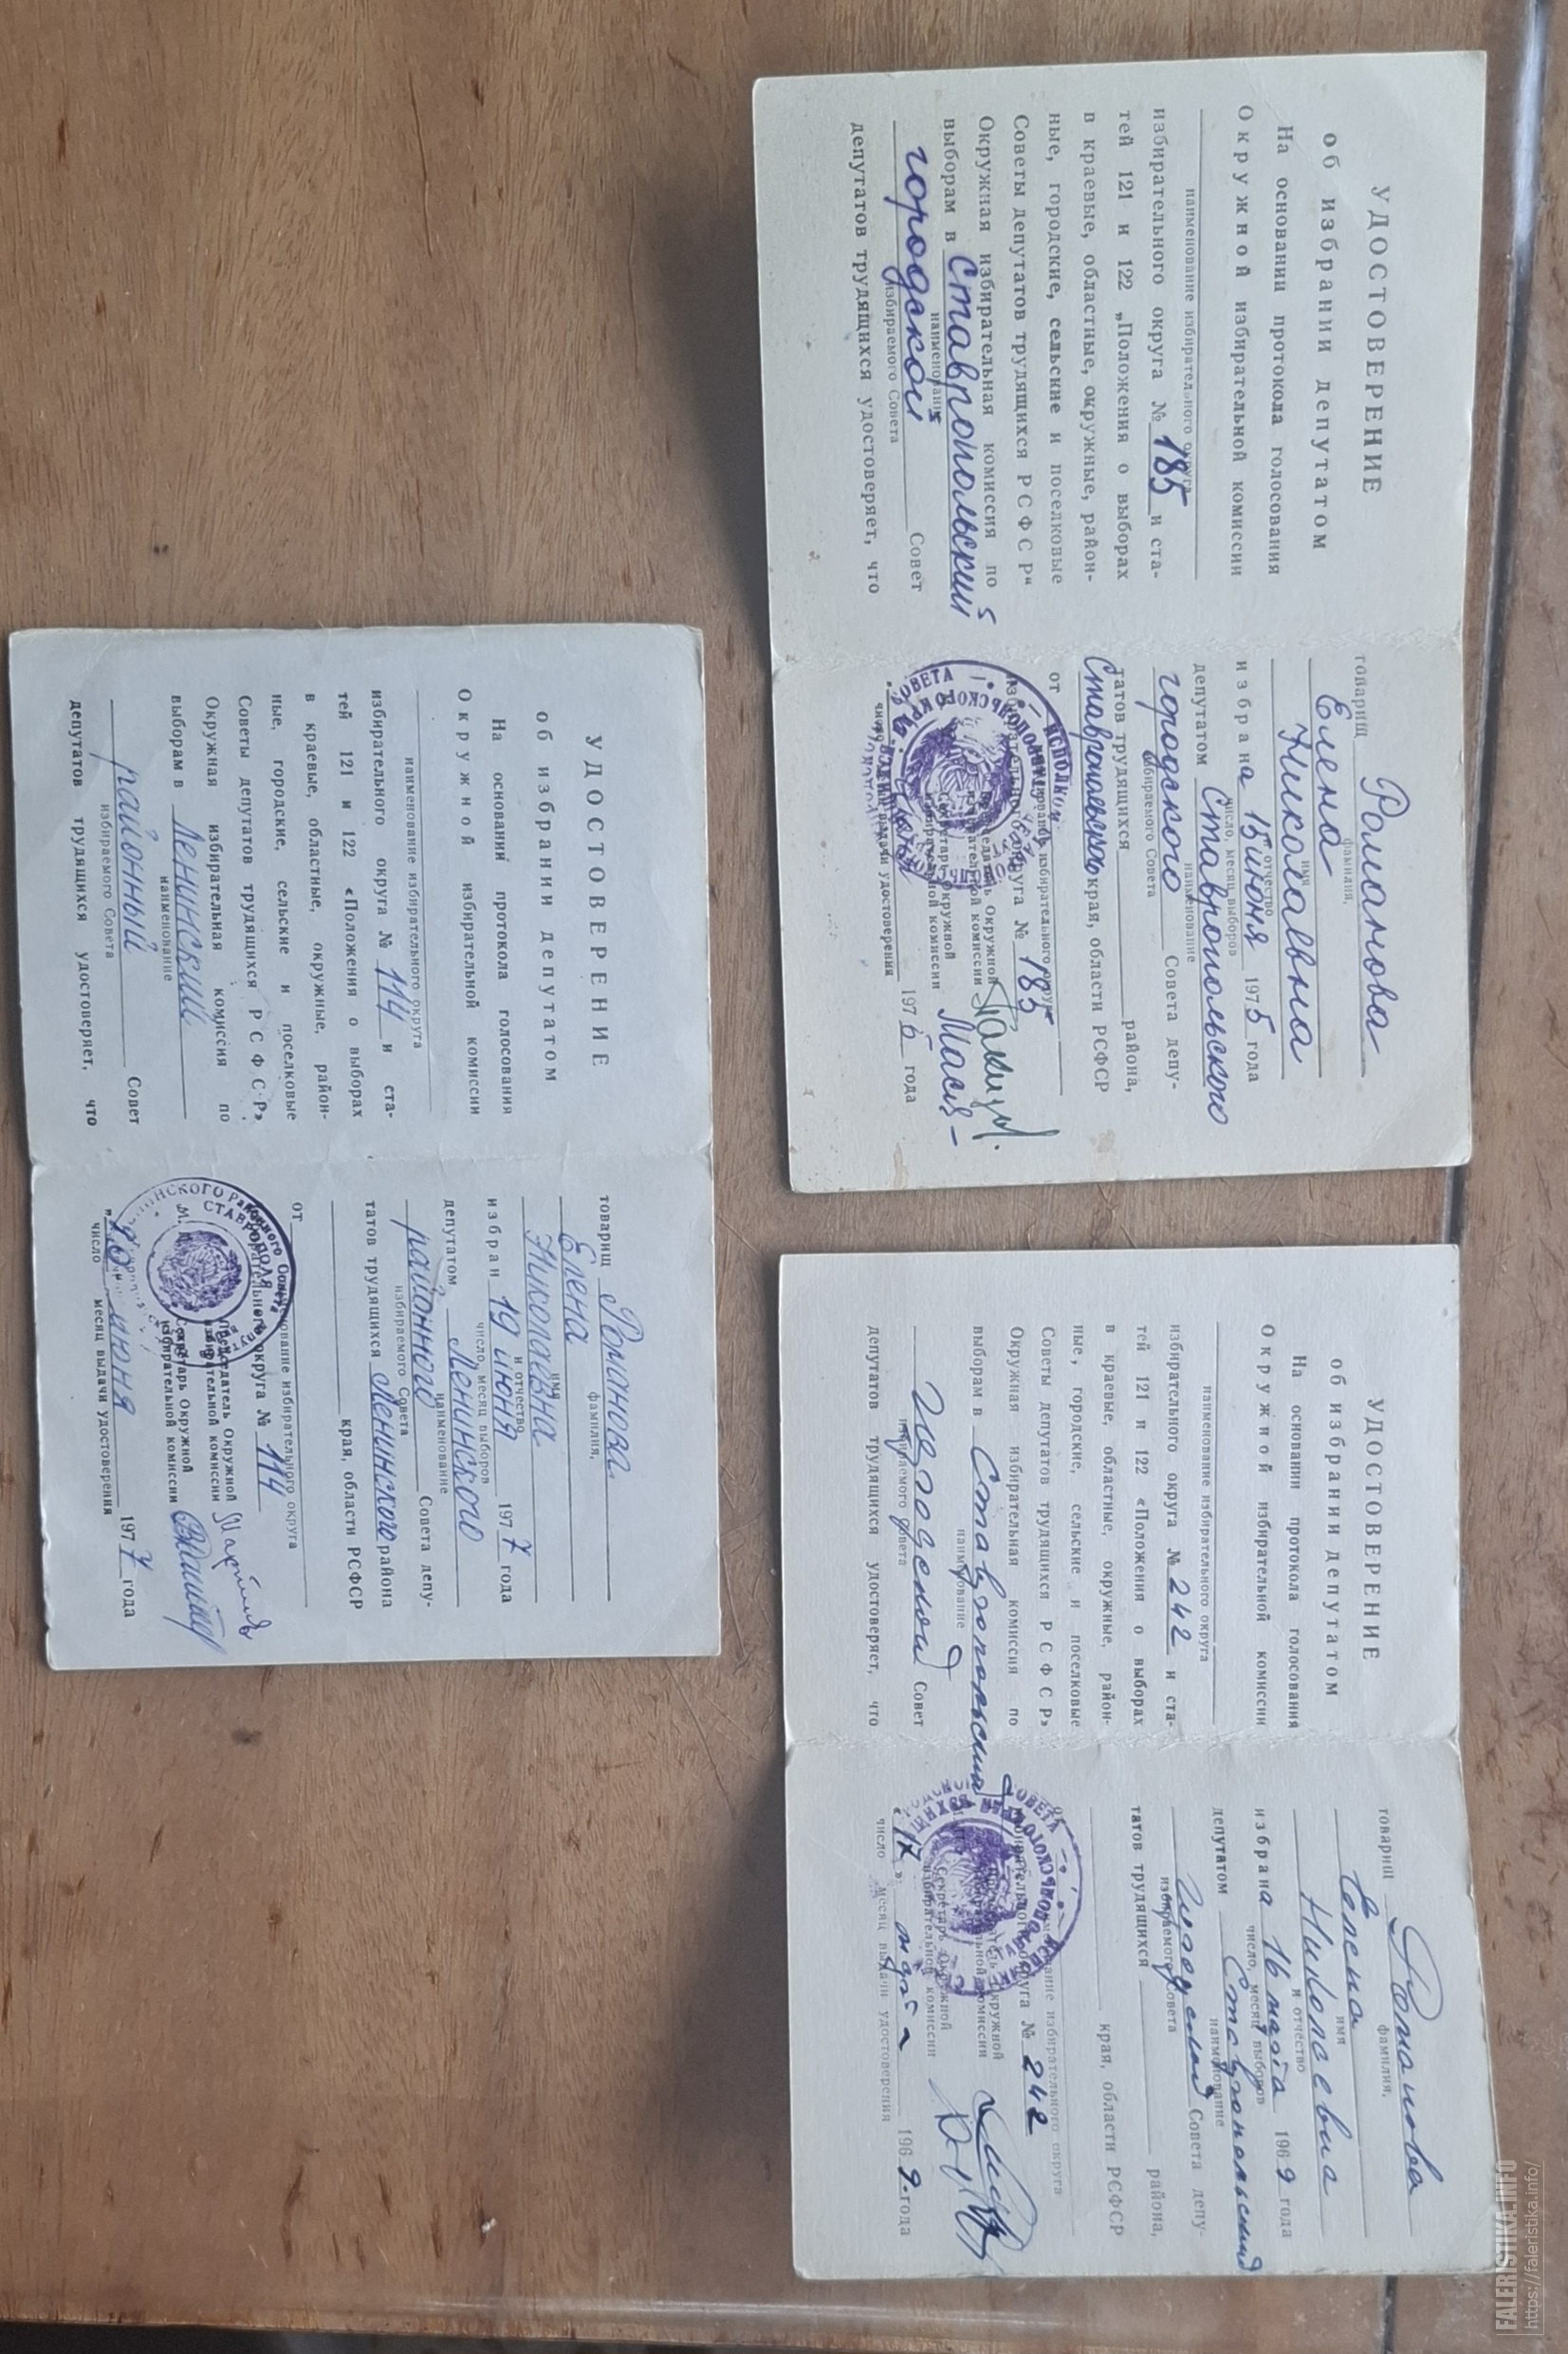 УДОСТОВЕРЕНИЕ
об избрании депутатом
На основании протокола голосования
Окружной избирательной комиссии
наименование избирательного округа
избирательного округа № 185 и ста-
тей 121 и 122 „Положения о выборах
в краевые, областные, окружные, район-
ные, городские, сельские и поселковые
Советы депутатов трудящихся РСФСР“
Окружная избирательная комиссия по
выборам в Ставропольский
наименование
городской Совет
избираемого Совета
депутатов трудящихся удостоверяет, что
товарищ Романова
фамилия,
Елена
имя
Николаевна
и отчество
избрана 15 июня 1975 года
число, месяц выборов
депутатом Ставропольского
наименование
городского Совета депу-
избираемого Совета
татов трудящихся района,
Ставропольского края, области РСФСР
от
наименование избирательного округа
избирательного округа № 185
Председатель Окружной
избирательной комиссии
Секретарь Окружной
избирательной комиссии
197 года
число месяц выдачи удостоверения
УДОСТОВЕРЕНИЕ
об избрании депутатом
На основании протокола голосования
Окружной избирательной комиссии
наименование избирательного округа
избирательного округа № 242 и ста-
тей 121 и 122 «Положения о выборах
в краевые, областные, окружные, район-
ные, городские, сельские и поселковые
Советы депутатов трудящихся РСФСР»
Окружная избирательная комиссия по
выборам в Ставропольский
наименование
городской Совет
избираемого Совета
депутатов трудящихся удостоверяет, что
товарищ Романова
фамилия,
Елена
имя
Николаевна
и отчество
избрана 16 марта 1969 года
число, месяц выборов
депутатом Ставропольский
наименование
городской Совета депу-
избираемого Совета
татов трудящихся района,
края, области РСФСР
от
наименование избирательного округа
избирательного округа № 242
Председатель Окружной
избирательной комиссии
Секретарь Окружной
избирательной комиссии
«17» марта 1969 года
число месяц выдачи удостоверения
УДОСТОВЕРЕНИЕ
об избрании депутатом
На основании протокола голосования
Окружной избирательной комиссии
наименование избирательного округа
избирательного округа № 114 и ста-
тей 121 и 122 «Положения о выборах
в краевые, областные, окружные, район-
ные, городские, сельские и поселковые
Советы депутатов трудящихся РСФСР»
Окружная избирательная комиссия по
выборам в Ленинский
наименование
районный Совет
избираемого Совета
депутатов трудящихся удостоверяет, что
товарищ Романова
фамилия,
Елена
имя
Николаевна
и отчество
избран 19 июня 1977 года
число, месяц выборов
депутатом Ленинского
наименование
районного Совета депу-
избираемого Совета
татов трудящихся Ленинского района
края, области РСФСР
от
наименование избирательного округа
избирательного округа № 114
Председатель Окружной
избирательной комиссии
Секретарь Окружной
избирательной комиссии
июня 1977 года
число месяц выдачи удостоверения
FALERISTIKA.INFO
https://faleristika.info/